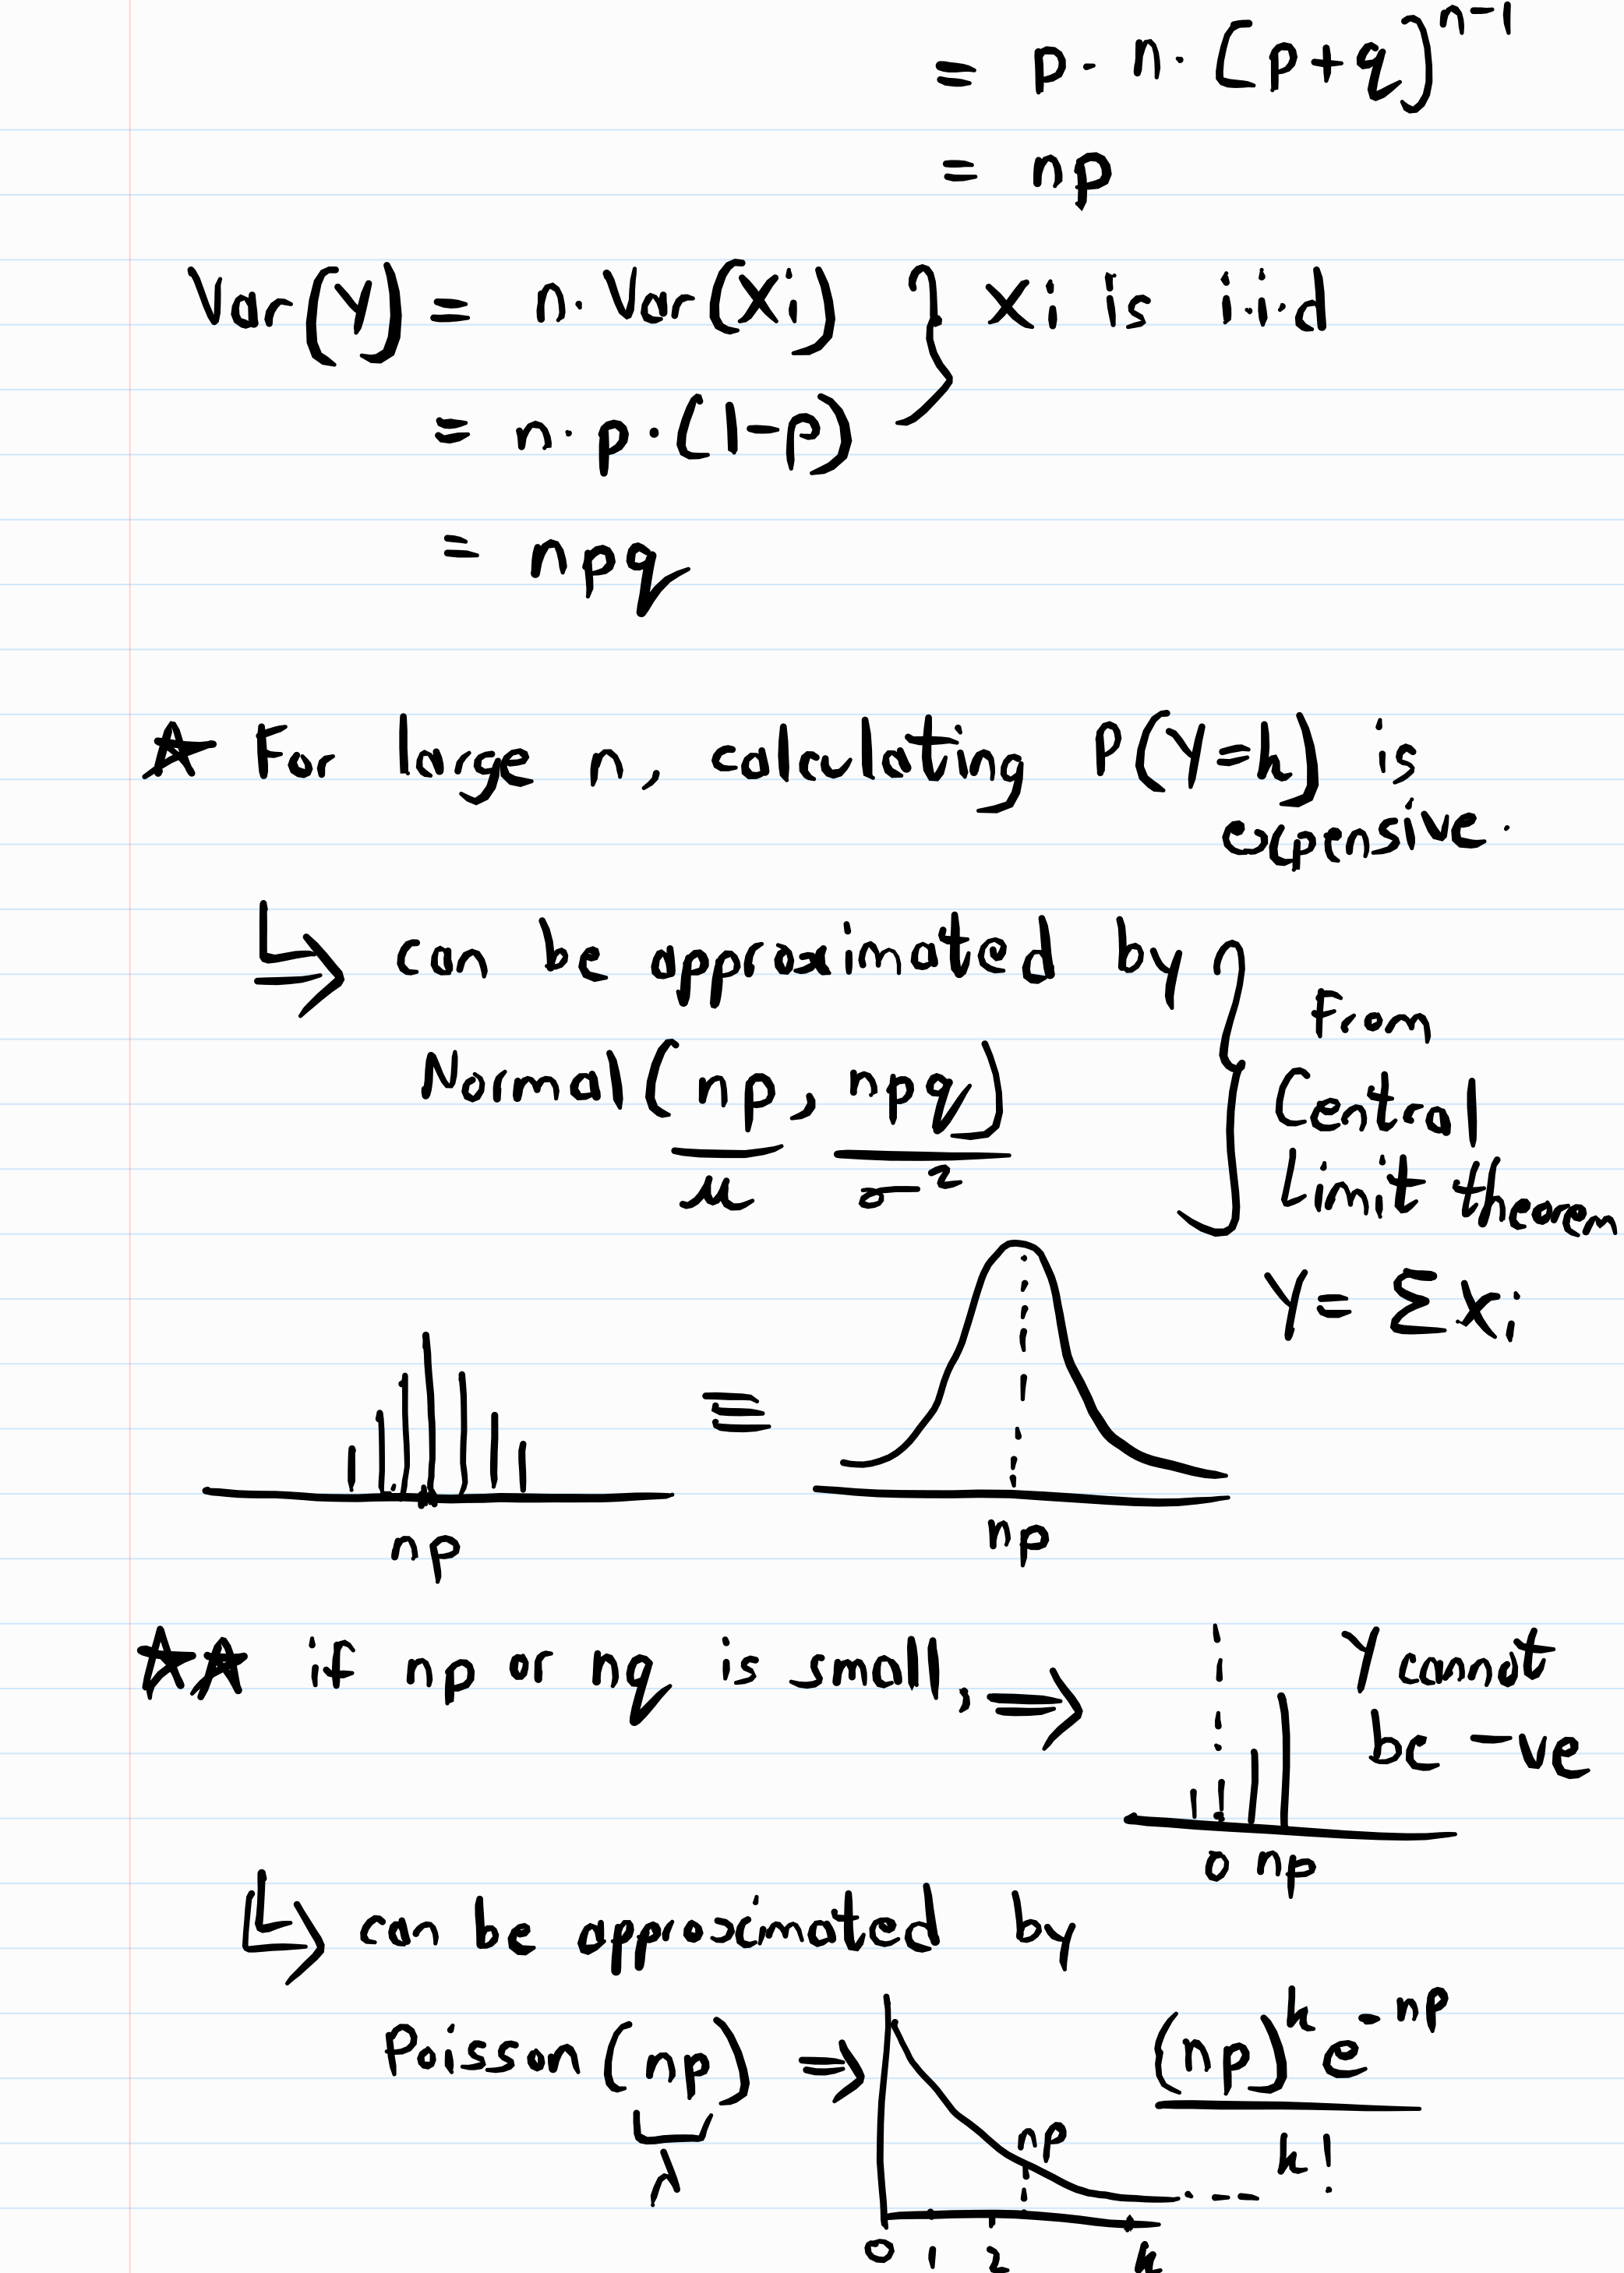 = p · n · (p+q)^{n-1}
= np
Var(Y) = n · Var(Xi) } Xi is i.i.d
= n · p · (1-p)
= npq
★ For large n, calculating P(Y=k) is
expensive.
↳ can be approximated by
Normal (np, npq)
μ σ²
From
Central
Limit theorem
Y = Σ Xi
np ≡ np
★★ if np or nq is small, ⇒ Y cannot
be -ve
0 np
↳ can be approximated by
Poisson (np) ⇒ (np)^k e^{-np} / k!
λ
np
0 1 2 k